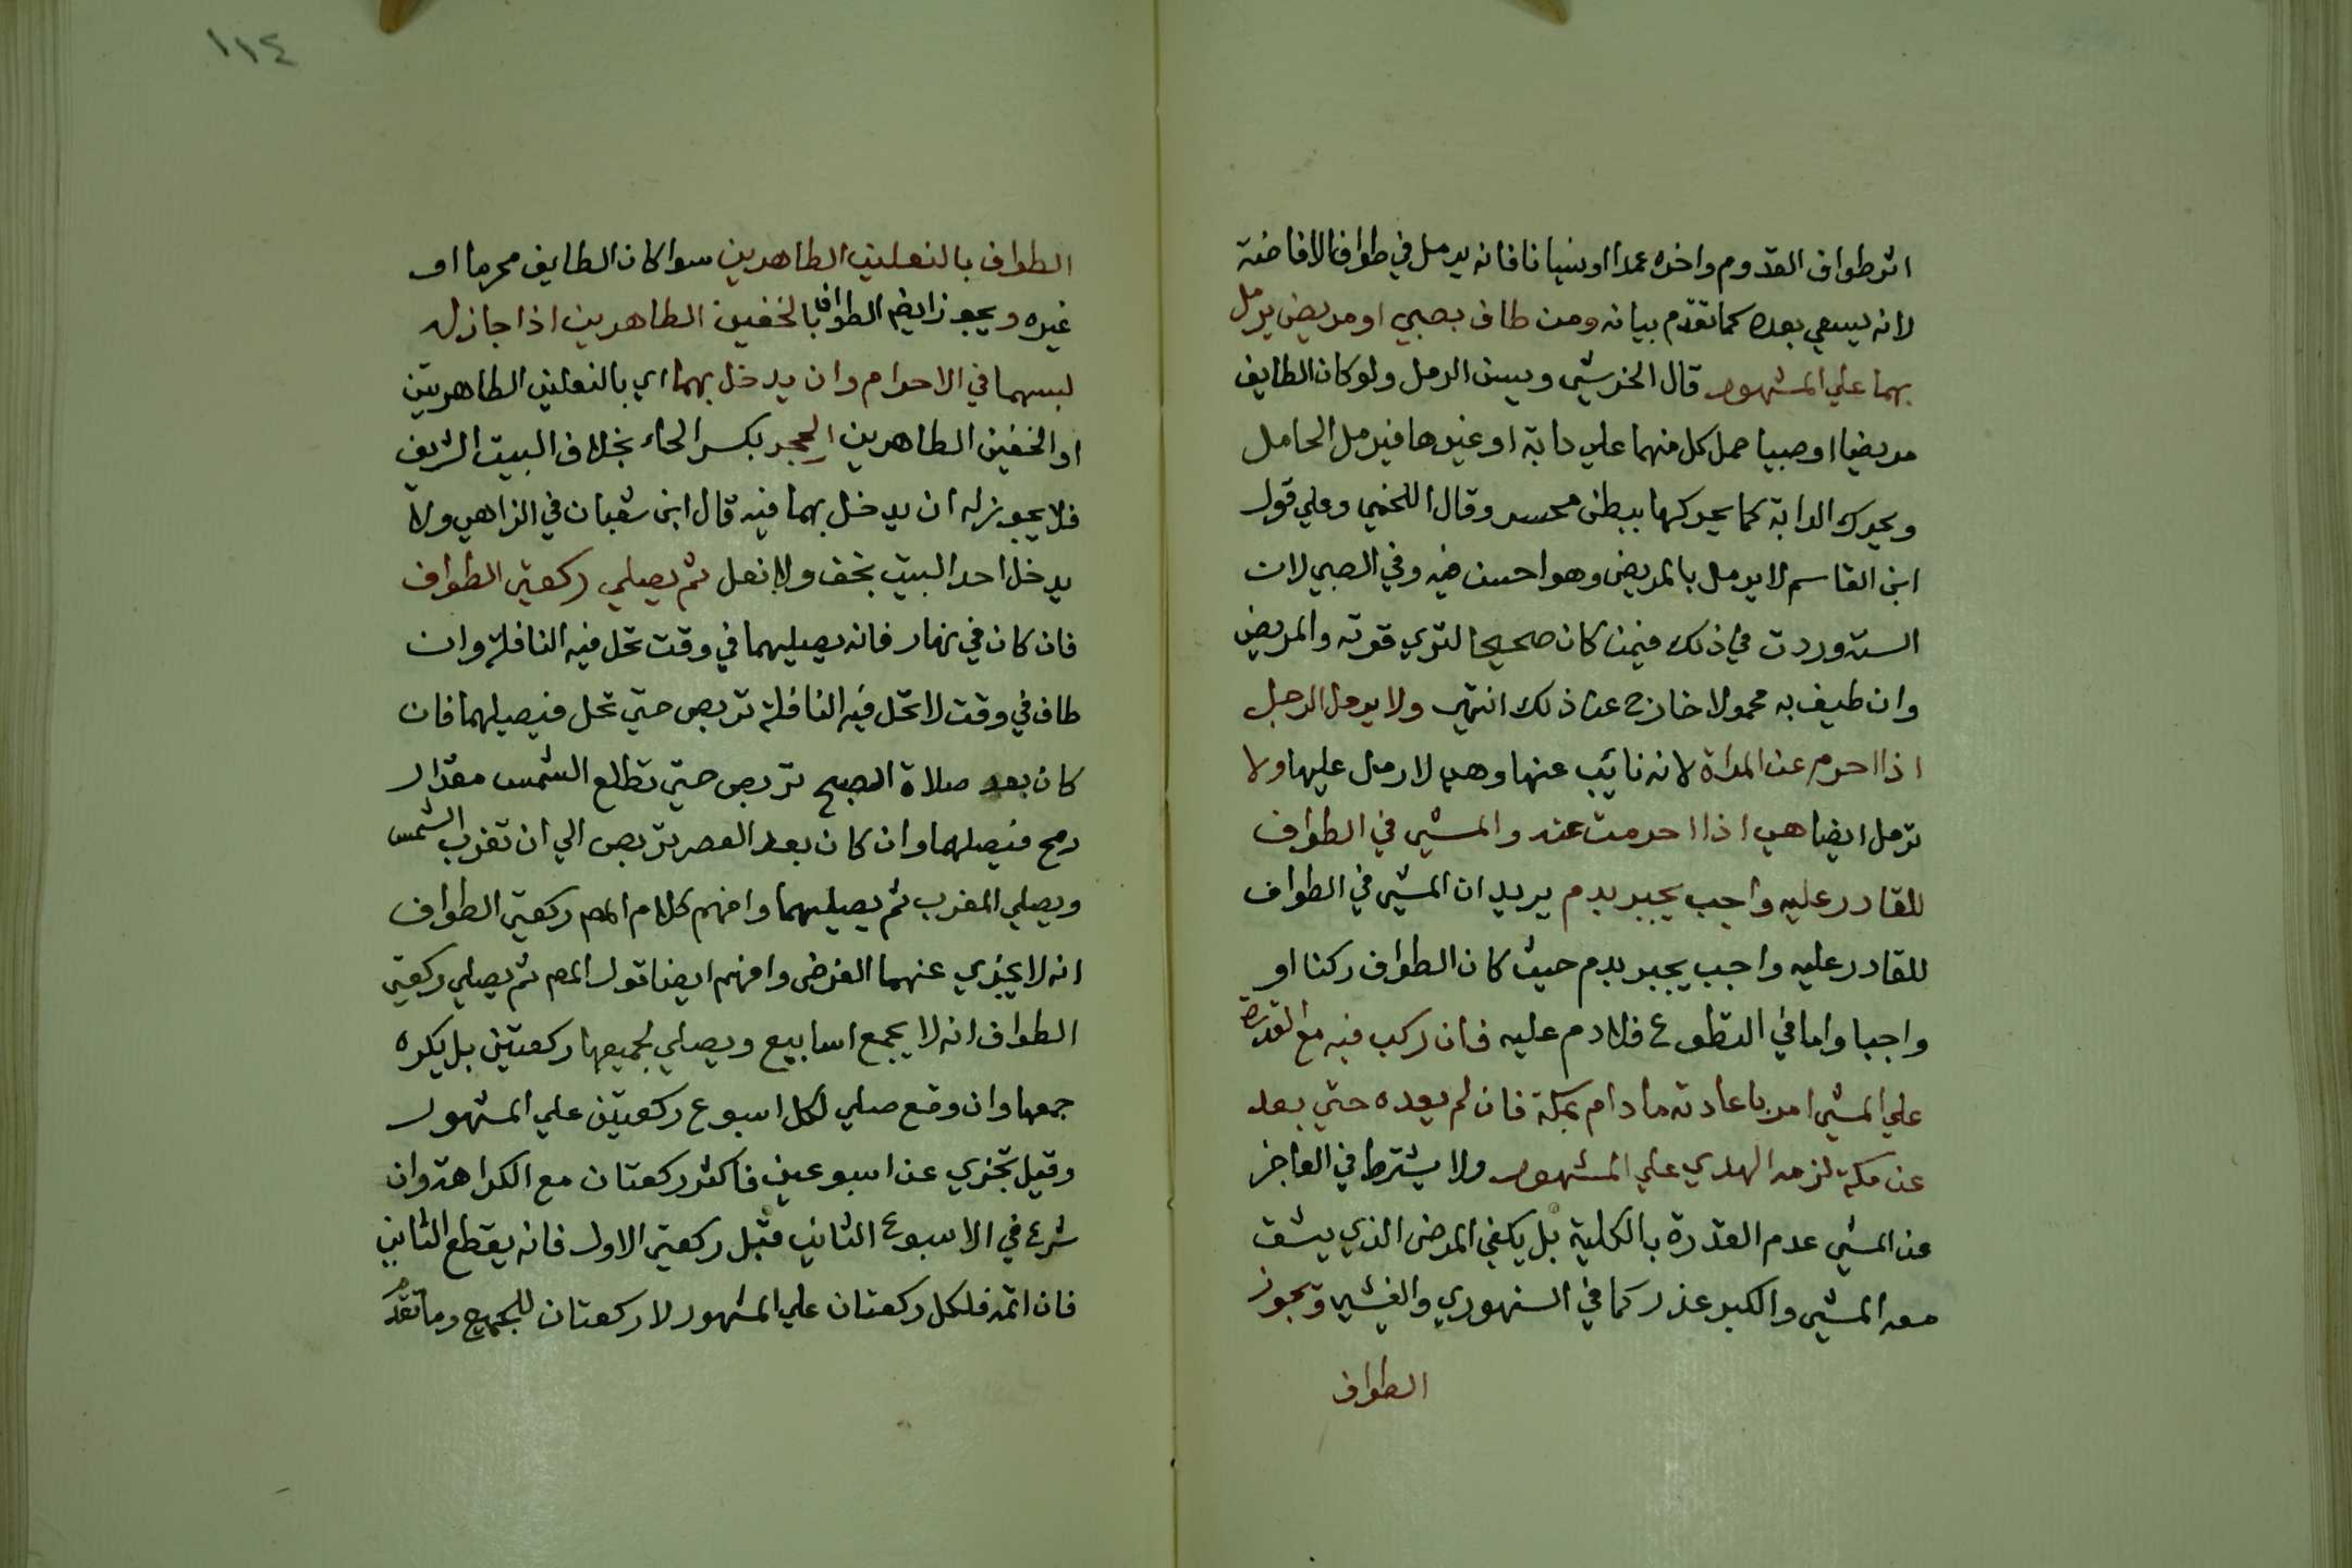 اثر طواف القدوم واخره عمدا او نسيانا فانه يرمل في طواف الافاضة
لانه يسعي بعده كما تقدم بيانه ومن طاف بصبي او مريض يرمل
بهما علي المشهور قال الخرشي ويسن الرمل ولو كان الطايف
مريضا او صبيا حمل كل منهما علي دابة او غيرها فيرمل الحامل
ويحرك الدابة كما يحركها ببطن محسر وقال اللخمي وعلي قول
ابن القاسم لا يرمل بالمريض وهو احسن فيه وفي الصبي لان
السنة وردت في ذلك فيمن كان صحيحا لتري قوته والمريض
وان طيف به محمولا خارج عن ذلك انتهي ولا يرمل الرجل
اذا احرم عن المراة لانه نائب عنها وهي لا رمل عليها ولا
ترمل ايضا هي اذا احرمت عنه والمشي في الطواف
للقادر عليه واجب يجبر بدم يريد ان المشي في الطواف
للقادر عليه واجب يجبر بدم حيث كان الطواف ركنا او
واجبا واما في التطوع فلا دم عليه فان ركب فيه مع القدرة
علي المشي امر باعادته ما دام بمكة فان لم يعده حتي بعد
عن مكة لزمه الهدي علي المشهور ولا يشترط في العاجز
عن المشي عدم القدرة بالكلية بل يكفي المرض الذي يشق
معه المشي والكبر عذر كما في السنهوري والفيشي ويجوز
الطواف
١١٤
الطواف بالنعلين الطاهرين سوا كان الطايف محرما او
غيره ويجوز ايضم الطواف بالخفين الطاهرين اذا جاز له
لبسهما في الاحرام وان يدخل بهما اي بالنعلين الطاهرين
او الخفين الطاهرين الحجر بكسر الحاء بخلاف البيت الشريف
فلا يجوز له ان يدخل بهما فيه قال ابن شعبان في الزاهي ولا
يدخل احد البيت بخف ولا نعل ثم يصلي ركعتي الطواف
فان كان في نهار فانه يصليهما في وقت تحل فيه النافلة وان
طاف في وقت لا تحل فيه النافلة تربص حتي تحل فيصليهما فان
كان بعد صلاة الصبح تربص حتي تطلع الشمس مقدار
رمح فيصلهما وان كان بعد العصر تربص الي ان تغرب الشمس
ويصلي المغرب ثم يصليهما وافهم كلام المص ركعتي الطواف
انه لا يجزي عنهما الفرض وافهم ايضا قول المص ثم يصلي ركعتي
الطواف انه لا يجمع اسابيع ويصلي لجميعها ركعتين بل يكره
جمعها وان وقع صلي لكل اسبوع ركعتين علي المشهور
وقيل تجزي عن اسبوعين فاكثر ركعتان مع الكراهة وان
شرع في الاسبوع الثاني قبل ركعتي الاول فانه يقطع الثاني
فان اتمه فلكل ركعتان علي المشهور لا ركعتان للجميع وما تقدم